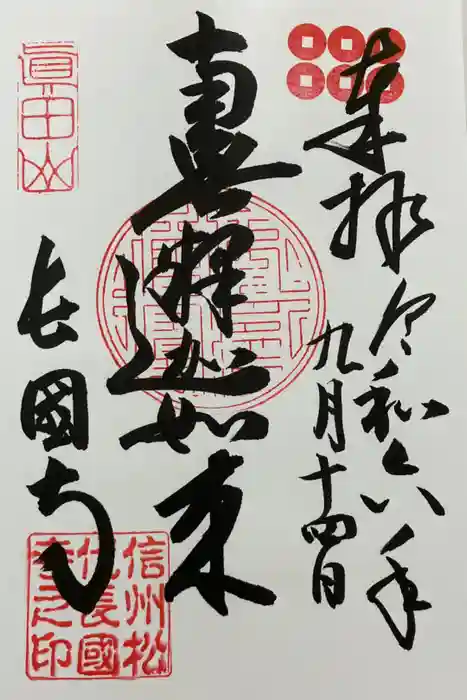 奉拝
令和六年
九月十四日
南無釋迦如来
眞田山
長國寺
信州松
代長國
寺之印